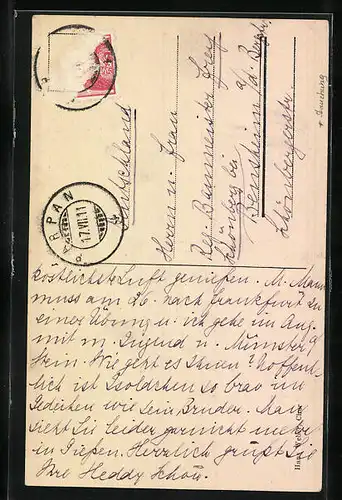 ARPAN
17.VII.11
Deutschland
Herrn u. Frau
Reg. Baumeister
Schönberg bei
Bensheim a/d. Bergstr.
Schönbergerstr.
köstlichste Luft genießen. M. Mann
muss am 26. nach Frankfurt zu
einer Übung u. ich gehe im Aug.
mit m. Jugend n. Münster a/
Stein. Wie geht es Ihnen? Hoffent-
lich ist Isoldchen so brav im
Gedeihen wie sein Bruder. Man
sieht Sie leider garnicht mehr
in Gießen. Herzlich grüßt Sie
Ihre Heddy Schön.